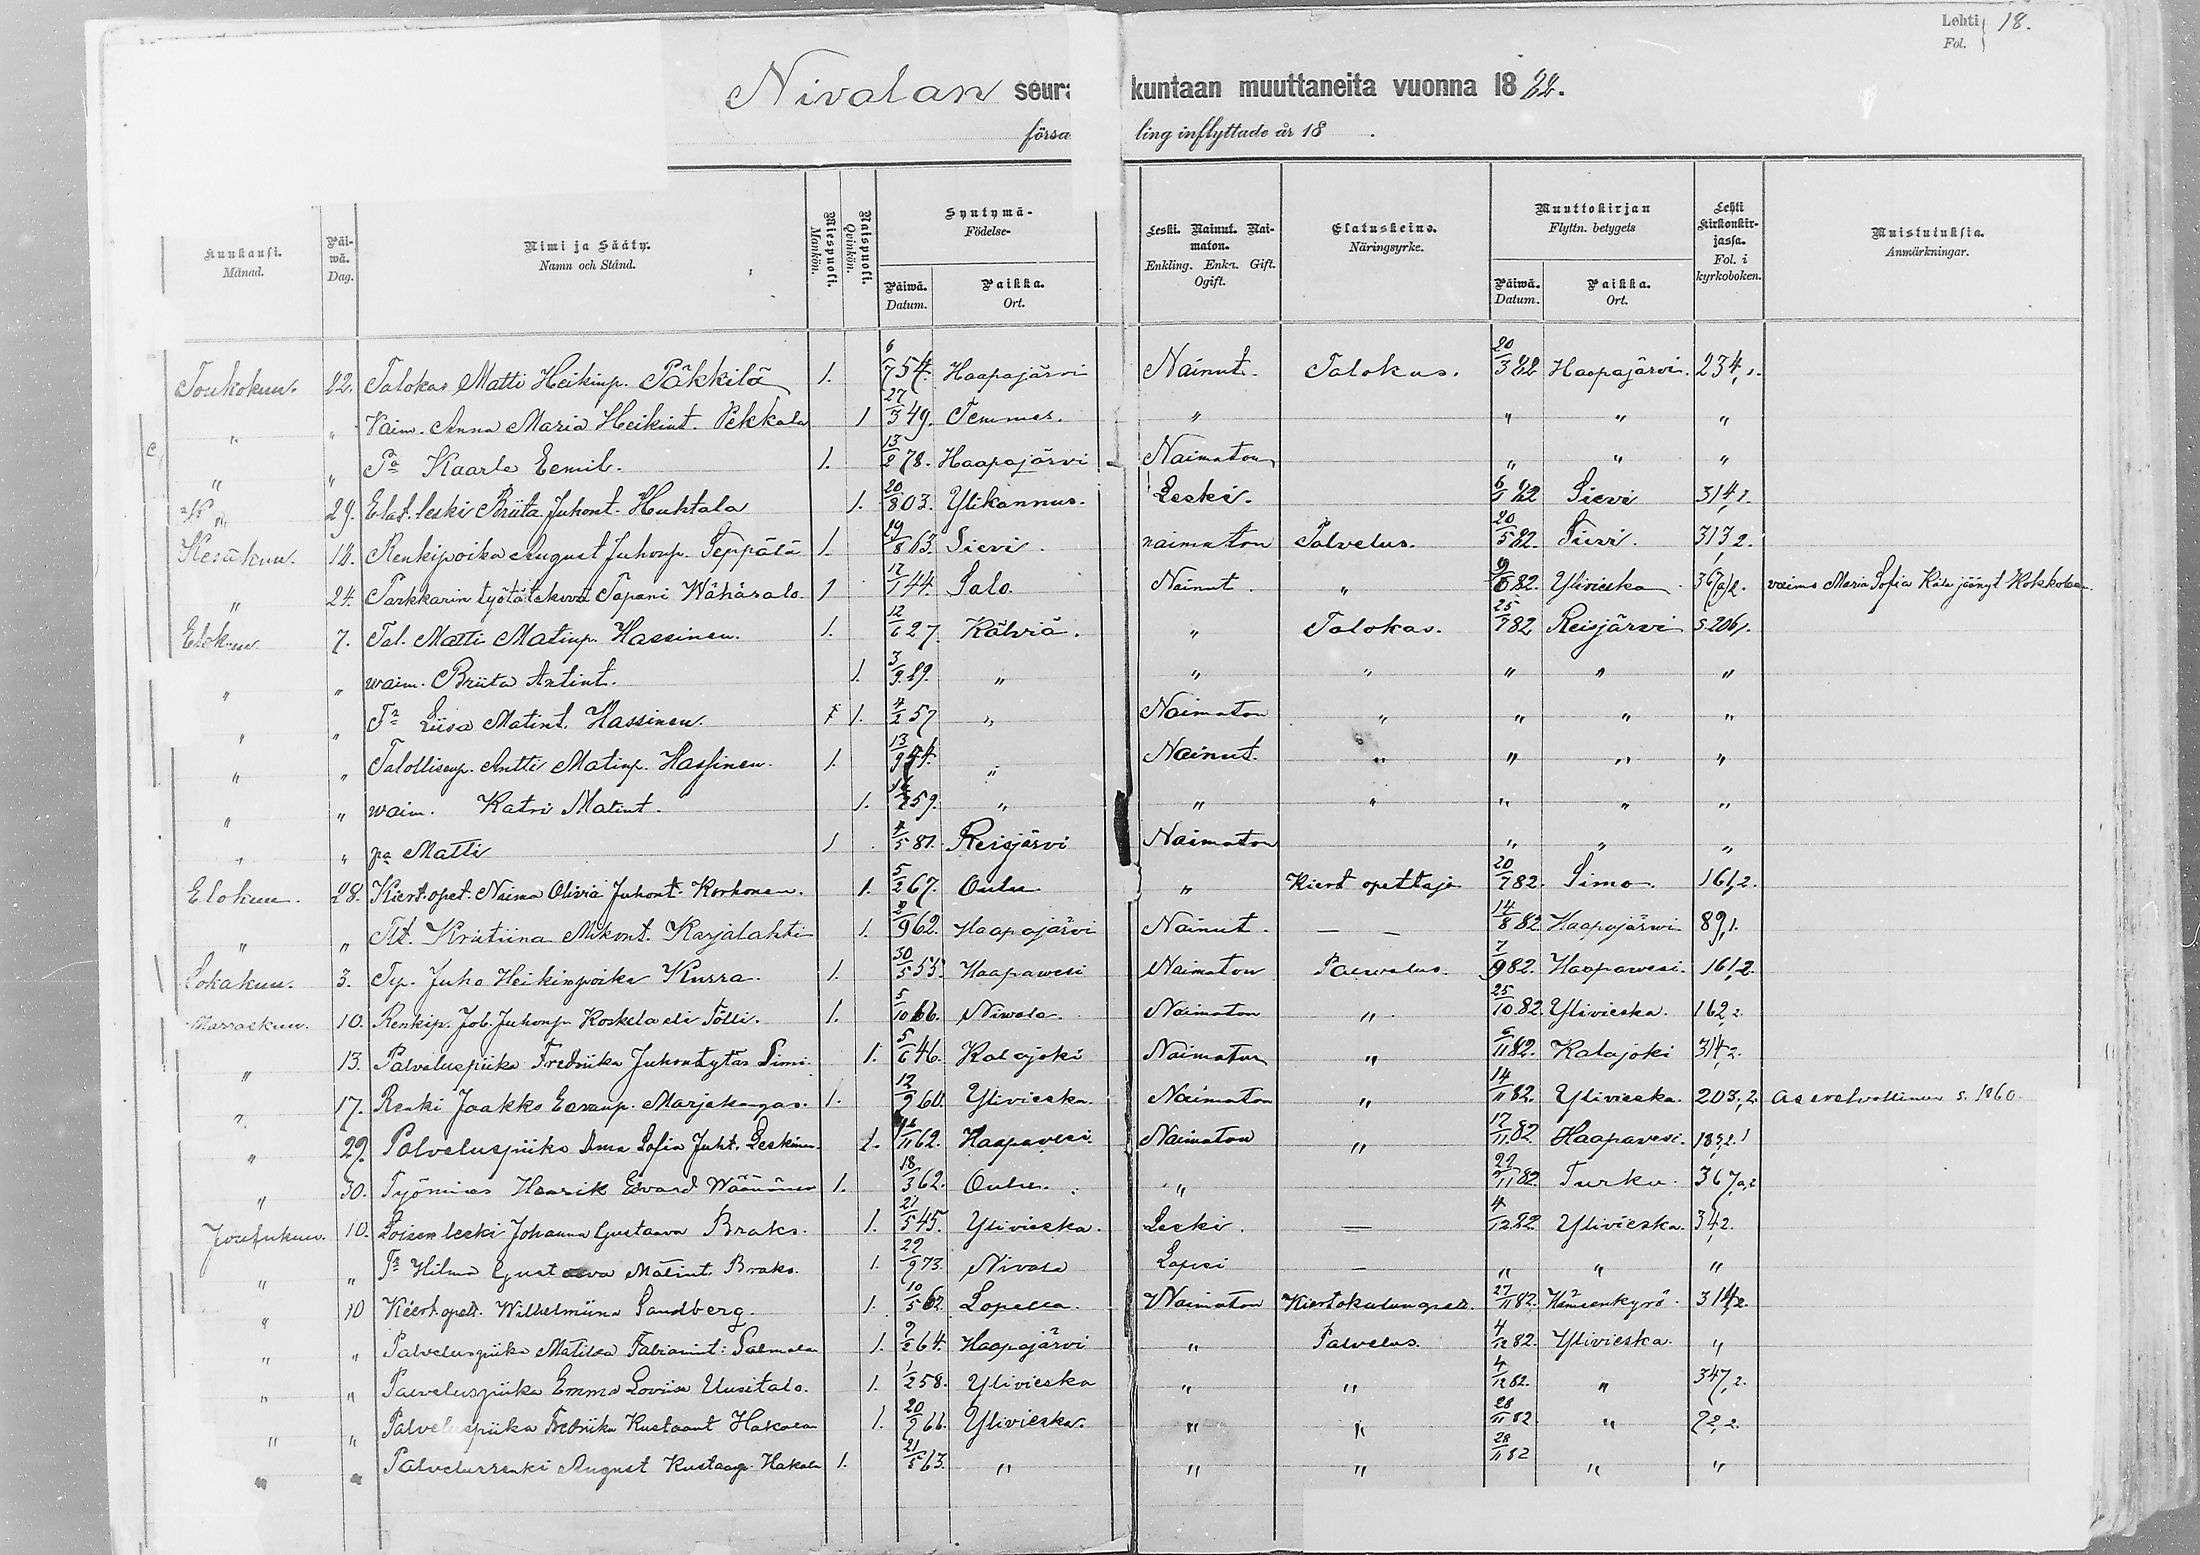 Lehti 18.
Fol.
Nivalan seura kuntaan muuttaneita vuonna 1882.
försa ling inflyttade år 18 .
Kuukausi. Månad. Päiwä. Dag. Nimi ja Sääty. Namn och Stånd. Miespuoli. Mankön. Naispuoli. Qvinkön. Syntymä- Födelse- Päiwä. Datum. Paikka. Ort. Leski. Nainut. Naimaton. Enkling. Enka. Gift. Ogift. Elatuskeino. Näringsyrke. Muuttokirjan Flyttn. betygets Päiwä. Datum. Paikka. Ort. Lehti kirkonkirjassa. Fol. i kyrkoboken. Muistutuksia. Anmärkningar.
Toukokuu. 22. Talokas Matti Heikinp. Päkkilä 1. 6/7 54. Haapajärvi Nainut. Talokas. 20/3 82 Haapajärvi. 234,1.
" " Vaim. Anna Maria Heikint. Pekkala 1 27/3 49. Temmes. " " " "
" " Pa Kaarle Eemil. 1. 13/2 78. Haapajärvi Naimaton " " "
29. Elat. leski Briita Juhont. Huhtala 1. 20/8 03. Ylikannus. Leski. 82 Sievi 314,2.
Kesäkuu. Renkipoika August Juhonp. Seppälä 1. 19/8 63. Sievi. naimaton Palvelus. 20/5 82. Sievi. 313,2.
" 24. Parkkarin työtätekevä Tapani Wähäsalo. 1 17/1 44. Salo. Nainut. " 9/6 82. Ylivieska 367,a/2. vaimo Maria Sofia jäänyt Kokkolaan.
Elokuu 7. Tal. Matti Matinp. Hassinen. 1. 12/6 27 Kälviä. " Talokas. 25/7 82 Reisjärvi S. 206/1.
" " waim. Briita Antint. 1. 3/9 29. " " " " " "
" " Tr Liisa Matint. Hassinen. 1. 4/2 57 " Naimaton " " " "
" " Talollisenp. Antti Matinp. Hassinen. 1. 13/9 54. " Nainut. " " " "
" " waim. Katri Matint. 1. 59. " " " " " "
" " pa Matti 1 4/5 81. Reisjärvi Naimaton " " "
Elokuu. 28. Kiert. opet. Naima Olivia Juhont. Korhonen. 1. 5/2 67. Oulu " Kiert opettaja 20/7 82. Simo. 161,2.
" " Tlt. Kristiina Mikont. Karjalahti 1. 2/9 62. Haapajärvi Nainut. — — 14/8 82 Haapajärwi 89,1.
Lokakuu. 3. Typ. Juho Heikinpoika Kurra. 1. 30/5 55. Haapawesi Naimaton Palvelus. 7/9 82. Haapawesi. 161,2.
Marraskuu. 10. Renkip. Joh. Juhonp. Koskela eli Tölli. 1. 5/10 66. Niwala. Naimaton " 25/10 82. Ylivieska. 162,2.
" 13. Palveluspiika Fredriika Juhontytär Simi 1. 5/6 46. Kalajoki Naimaton " 6/11 82. Kalajoki 314,2.
" 17. Renki Jaakko Eeronp. Marjakangas. 1. 12/9 60. Ylivieska. Naimaton " 14/11 82. Ylivieska. 203,2. Asevelvollinen s. 1860.
" 29. Palveluspiika Anna Sofia Juht. Leskinen. 1. 62. Haapavesi. Naimaton " 17/11 82. Haapavesi.
" 30. Työmies Henrik Edvard Wäänänen 1. 18/3 62. Oulu. " 22/11 82. Turku. 367,a,2
Joulukuu. 10. Loisen leski Johanna Gustaava Braks. 1. 21/5 45. Ylivieska. Leski. — 4/12 82 Ylivieska. 34,2.
" " Tr Hilma Gustaava Matint. Braks. 1. 29/9 73. Nivala Lapsi — " " "
" 10 Kiert. opett. Wilhelmiina Sandberg. 1. 10/5 62. Naimaton Kiertokoulunopett. 27/11 82. Hämeenkyrö. 314,2.
" " Palveluspiika Matilda Fabianint: Salmela 1. 9/2 64. Haapajärvi " Palvelus. 4/12 82. Ylivieska. "
" " Palveluspiika Emma Loviisa Uusitalo. 1. 1/2 58. Ylivieska " " 4/12 82. " 347,2.
" " Palveluspiika Fredriika Kustaant Hakola 1. 20/9 66. Ylivieska. " " 28/11 82 "
" " Palvelusrenki August Kustaanp. Hakola 1. 21/5 63. " " " 28/11 82 " "